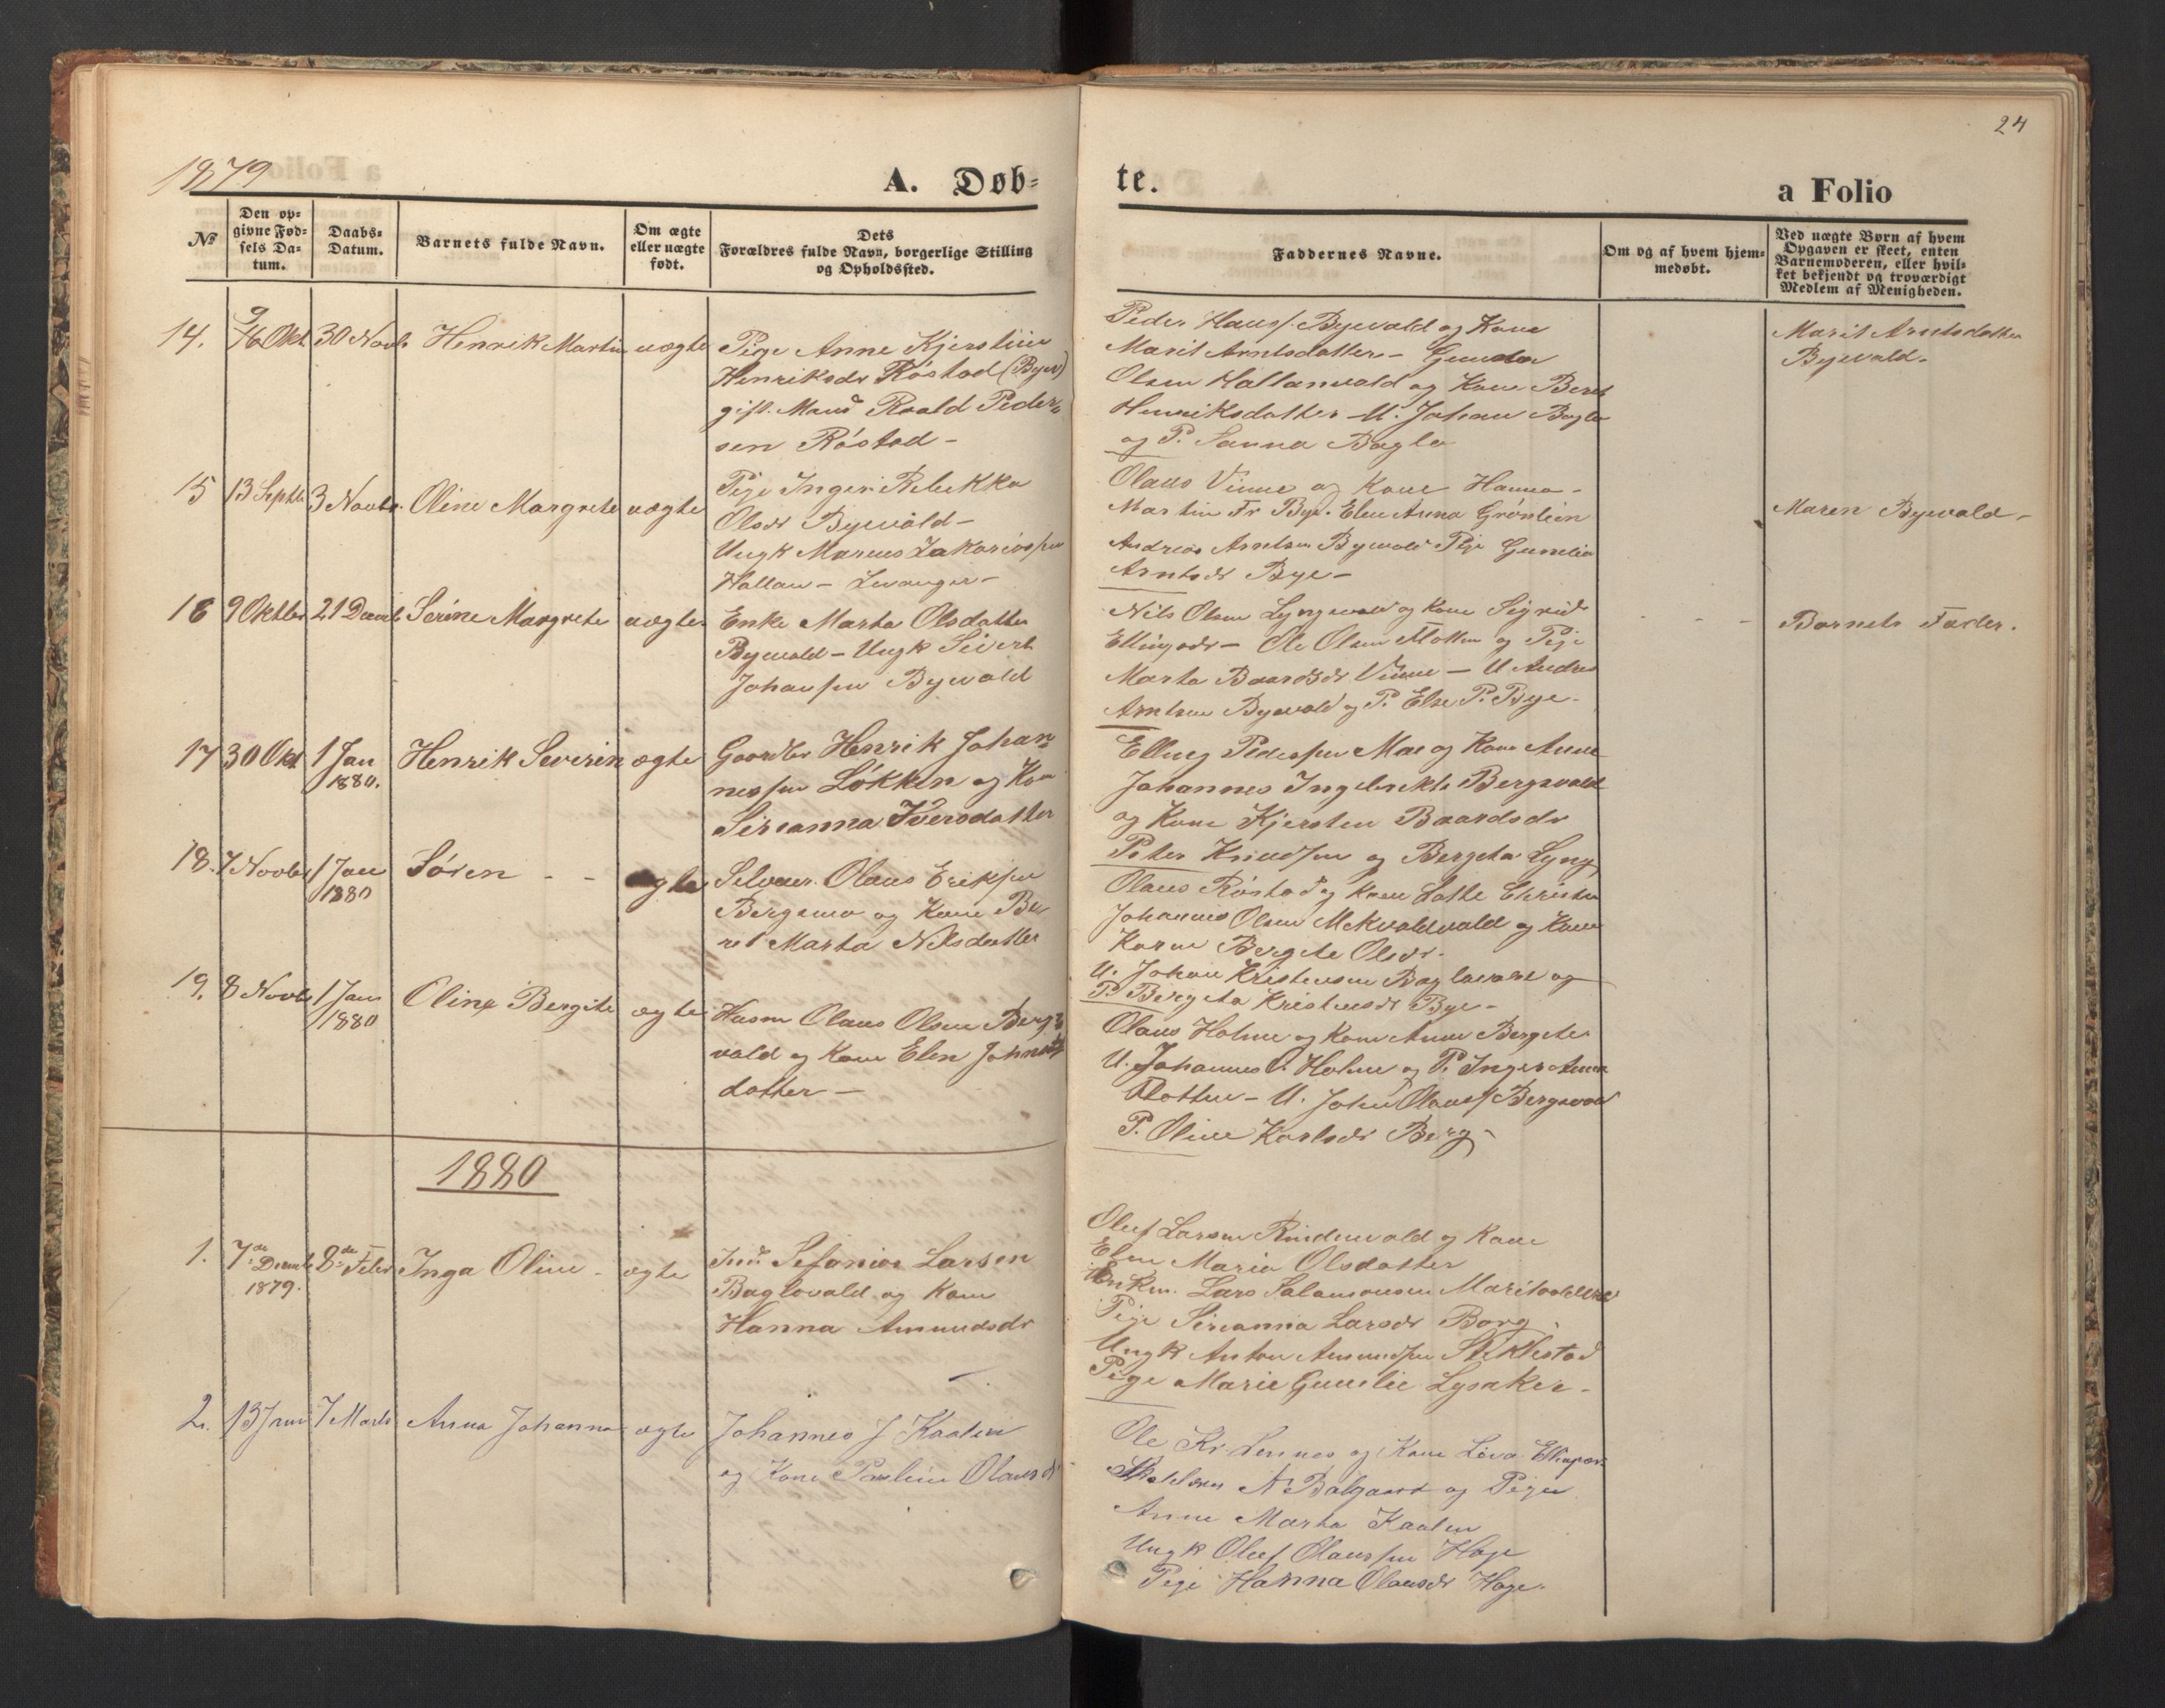 24
1879
A. Døb=
te.
a Folio
№
Den op=
givne Fød=
sels Da=
tum.
Daabs=
Datum.
Barnets fulde Navn.
Om ægte
eller uægte
født.
Dets
Forældres fulde Navn, borgerlige Stilling
og Opholdssted.
Faddernes Navne.
Om og af hvem hjem=
medøbt.
Ved uægte Børn af hvem
Opgaven er skeet, enten
Barnemoderen, eller hvil=
ket bekjendt og troværdigt
Medlem af Menigheden.
14.
Okt
30 Novb
Henrik Martin
uægte
Pige Anne Kjerstine
Henriksdr Röstad (Bye)
gift. Mand Roald Peder=
sen Röstad -
Peder Hans/. Byevald og Kone
Marit Arntsdatter - Gunder
Olsen Hallanvald og Kone Beret
Henriksdatter U. Johan Baglo
og P. Sanna Baglo
Marit Arntsdatter
Byevald.
15
13 Septb
3 Novbr.
Oline Margrete
uægte
Pige Inger Rebekka
Olsdr Byevald -
Ungk Marcus Zakariassen
Hallan - Levanger -
Olaus Vinne og Kone Hanna -
Martin Fr Bye. Elen Anna Grønlien
Andreas Arntsen Byevald Pige Gunelia
Arntsdr Bye -
Maren Byevald -
16
9 Oktbr
21 Decmb
Serine Margrete
uægte
Enke Marta Olsdatter
Byevald - Ungk Sivert
Johansen Byevald
Nils Olsen Lyngsvald og Kone Sigrid
Ellingsdr - Ole Olsen og Pige
Marta Baardsdr Vinne - U Andreas
Arntsen Byevald og P. Else P. Bye -
Barnets Fader.
17
30 Okt
1 Jan
1880.
Henrik Severin
ægte
Gaardbr Henrik Johan=
nessen Lökken og Kone
Sirianna Iversdatter
Elling Pedersen Mae og Kone Anne
Johannes Ingebrikts Bergsvald
og Kone Kjersten Baardsdr
Peter Knudsen og Bergeta Lyng
18.
7 Novbr
1 Jan
1880
Sören - -
ægte
Selveier Olaus Eriksen
Bergsmo og Kone Be
ret Marta Nilsdatter
Olaus Röstad og Kone Lotte Christin
Johannes Olsen Mikvoldvald og Kone
Karen Bergete Olsdr.
U. Johan Kristensen Baglovald og
P. Bergeta Kristensdr Bye -
19.
8 Novb
1 Jan
1880
Oline Bergite
ægte
Husm Olaus Olsen Bergs
vald og Kone Elen Johns
datter -
Olaus Holme og Kone Anne Bergete
U. Johannes O. Holme og P. Inger Anna
U. John Olaus/ Bergsvald
P. Oline Karlsdr Berg -
1880
1.
7de Decmb
1879.
8de Febr
Inga Oline -
ægte
Ind Sefanias Larsen
Baglovald og Kone
Hanna Amundsdr
Oluf Larsen Rindenvald og Kone
Elen Maria Olsdatter
Enkm. Lars Salamonsen Maritvold
Pige Sirianna Larsdr Borg
Ungk Anton Amundsen Stiklestad
Pige Marie Gunelie Lysaker -
2.
13 Janr
7 Marts
Anna Johanna
ægte
Johannes J Kaalen
og Kone Pauline Olausdr
Ole Kr. Lennes og Kone Liva
N Balgaard og Pige
Anne Marta Kaalen
Ungk Oluf Olaussen Hage
Pige Hanna Olausdr Hage.